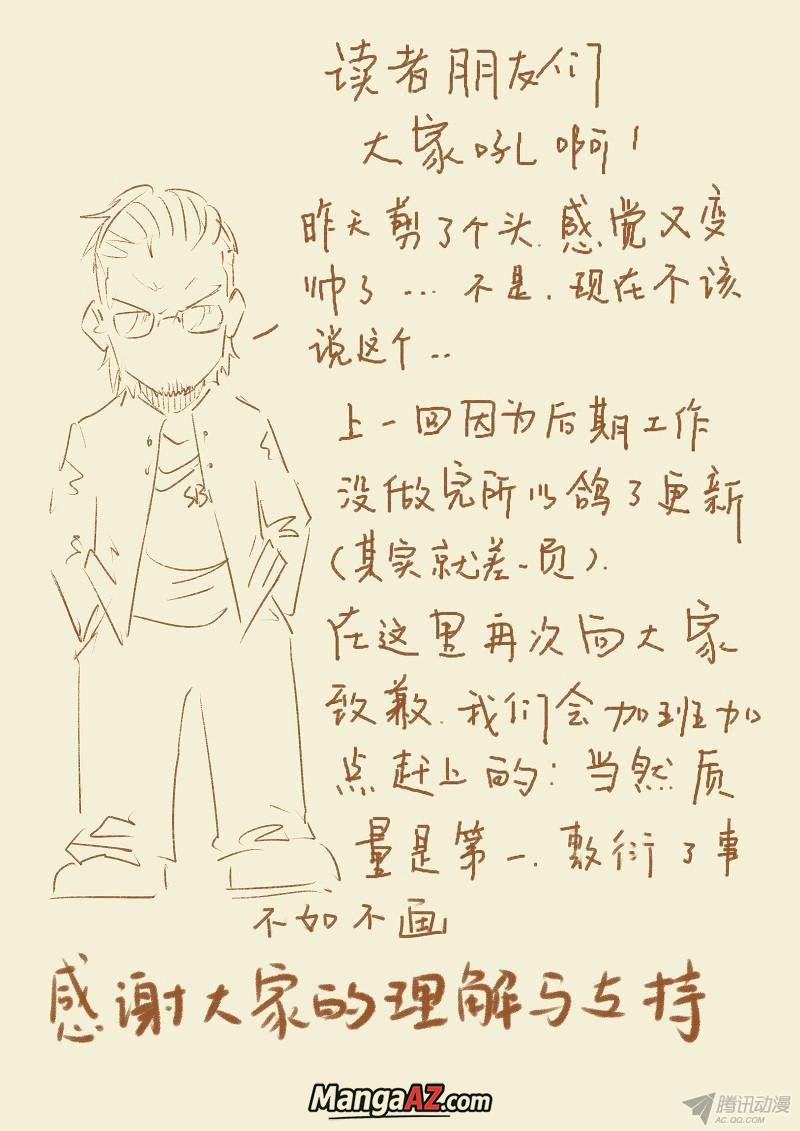 读者朋友们
大家吼啊！
昨天剪了个头.感觉又变
帅了...不是.现在不该
说这个..
上一回因为后期工作
没做完所以鸽了更新
(其实就差一页).
在这里再次向大家
致歉.我们会加班加
点赶上的:当然质
量是第一.敷衍了事
不如不画
感谢大家的理解与支持
SB!
MangaAZ.com
腾讯动漫
AC.QQ.COM